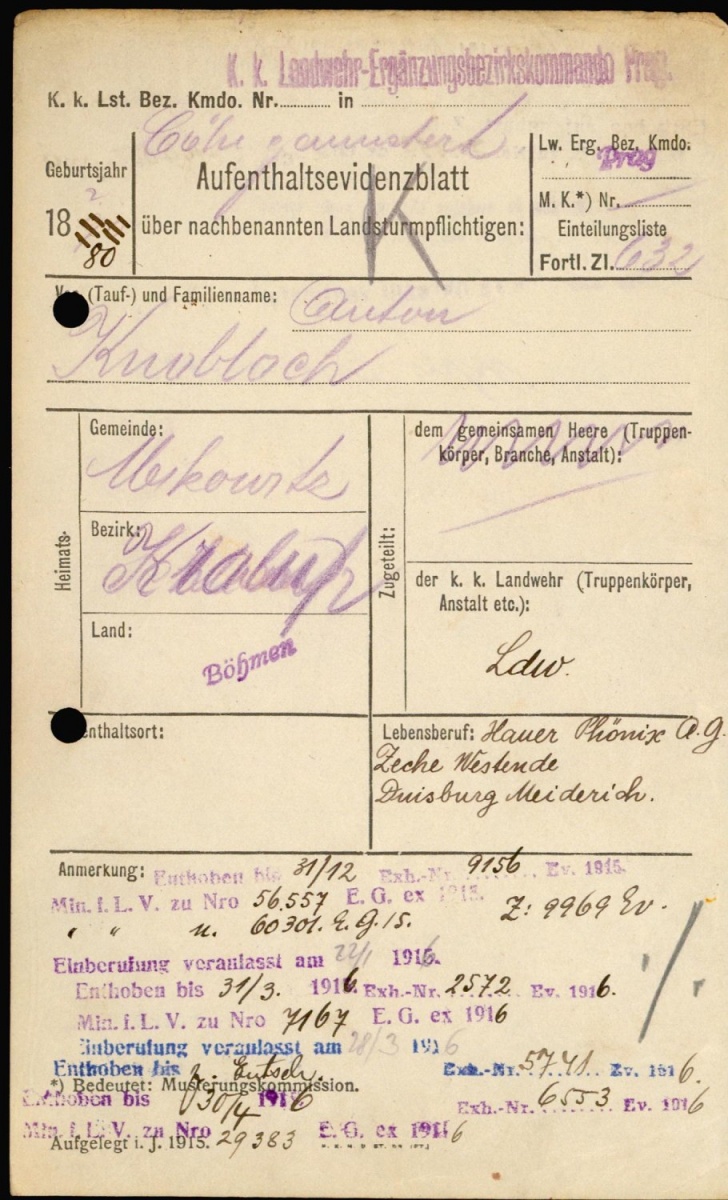 K. k. Landwehr-Ergänzungsbezirkskommando Prag.
K. k. Lst. Bez. Kmdo. Nr. in
Cöln gemustert
Geburtsjahr
18
80
Aufenthaltsevidenzblatt
über nachbenannten Landsturmpflichtigen:
K
Lw. Erg. Bez. Kmdo.
Prag
M. K.*) Nr.
Einteilungsliste
Fortl. Zl. 632
Vor- (Tauf-) und Familienname: Anton
Knobloch
Heimats-
Gemeinde:
Bezirk:
Land:
Böhmen
Zugeteilt:
dem gemeinsamen Heere (Truppen-
körper, Branche, Anstalt):
der k. k. Landwehr (Truppenkörper,
Anstalt etc.):
Ldw.
enthaltsort:
Lebensberuf: Hauer Phönix A. G.
Zeche Westende
Duisburg Meiderich.
Anmerkung: Enthoben bis 31/12 Exh.-Nr. 9156 Ev. 1915.
Min. f. L. V. zu Nro 56.557 E. G. ex 1915. Z: 9969 Ev.
" " u. 60301. E. G. 15.
Einberufung veranlasst am 22/1 1916.
Enthoben bis 31/3. 1916. Exh.-Nr. 2572 Ev. 1916.
Min. f. L. V. zu Nro 7167 E. G. ex 1916
Einberufung veranlasst am 28/3 1916
Enthoben bis z. Entsch. Exh.-Nr. 5741 Ev. 1916.
*) Bedeutet: Musterungskommission.
Enthoben bis 30/4 1916 Exh.-Nr. 6553 Ev. 1916
Min. f. L. V. zu Nro 29383 E. G. ex 1916
Aufgelegt i. J. 1915.